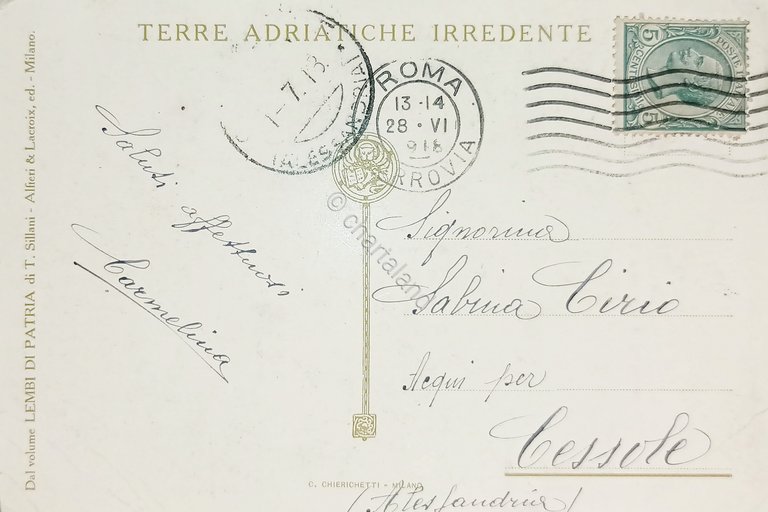 TERRE ADRIATICHE IRREDENTE
Dal volume LEMBI DI PATRIA di T. Sillani - Alfieri & Lacroix, ed. - Milano.
1-7.18.
(ALESSANDRIA)
ROMA
13·14
28·VI
918
FERROVIA
POSTE ITALIANE
5 CENTESIMI 5
Saluti
affettuosi
Carmelina
Signorina
Sabina Cirio
Acqui per
Cessole
(Alessandria)
© chartaland
C. CHIERICHETTI - MILANO